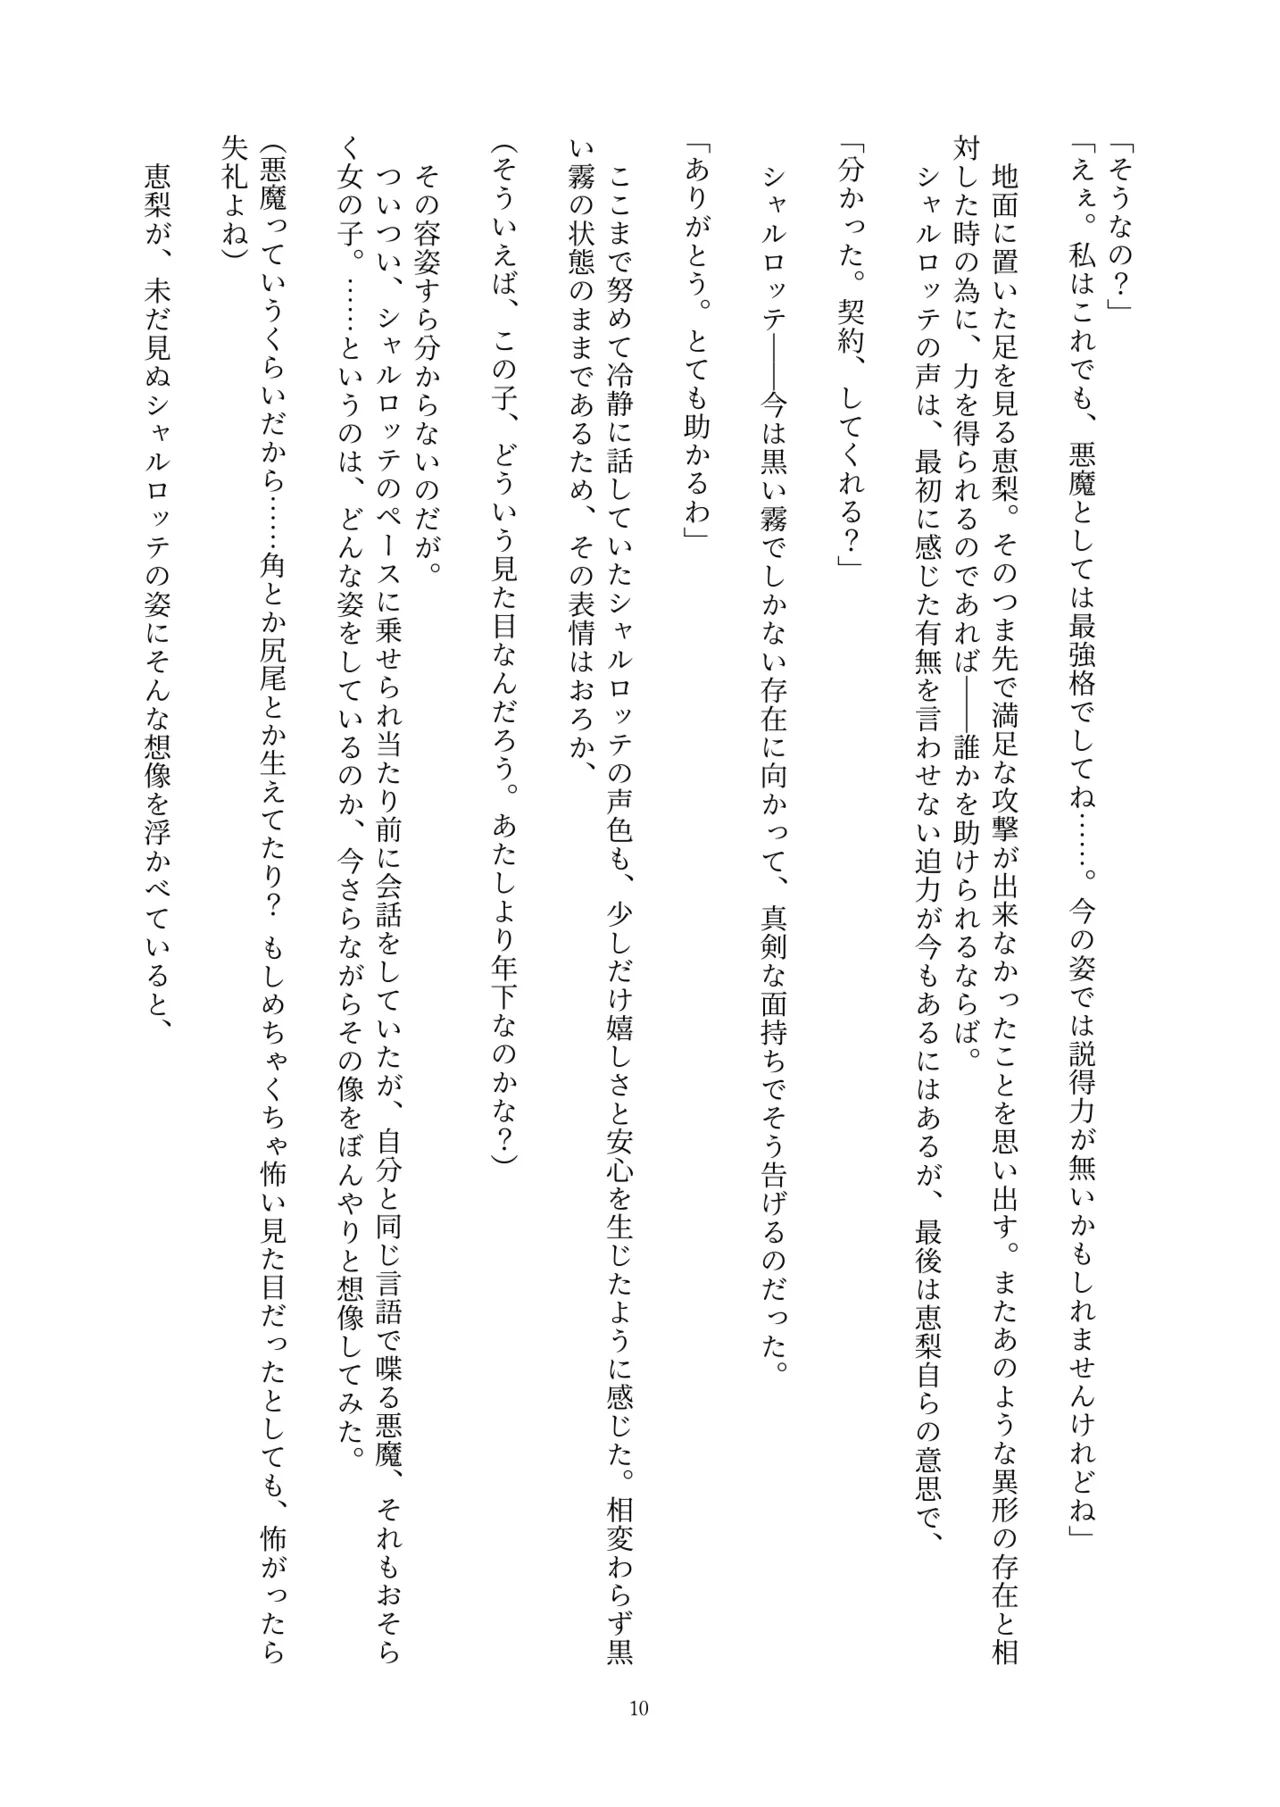 「そうなの？」
「えぇ。私はこれでも、悪魔としては最強格でしてね……。今の姿では説得力が無いかもしれませんけれどね」
　地面に置いた足を見る恵梨。そのつま先で満足な攻撃が出来なかったことを思い出す。またあのような異形の存在と相
対した時の為に、力を得られるのであれば――誰かを助けられるならば。
　シャルロッテの声は、最初に感じた有無を言わせない迫力が今もあるにはあるが、最後は恵梨自らの意思で、
「分かった。契約、してくれる？」
　シャルロッテ――今は黒い霧でしかない存在に向かって、真剣な面持ちでそう告げるのだった。
「ありがとう。とても助かるわ」
　ここまで努めて冷静に話していたシャルロッテの声色も、少しだけ嬉しさと安心を生じたように感じた。相変わらず黒
い霧の状態のままであるため、その表情はおろか、
（そういえば、この子、どういう見た目なんだろう。あたしより年下なのかな？）
　その容姿すら分からないのだが。
　ついつい、シャルロッテのペースに乗せられ当たり前に会話をしていたが、自分と同じ言語で喋る悪魔、それもおそら
く女の子。……というのは、どんな姿をしているのか、今さらながらその像をぼんやりと想像してみた。
（悪魔っていうくらいだから……角とか尻尾とか生えてたり？　もしめちゃくちゃ怖い見た目だったとしても、怖がったら
失礼よね）
　恵梨が、未だ見ぬシャルロッテの姿にそんな想像を浮かべていると、
10